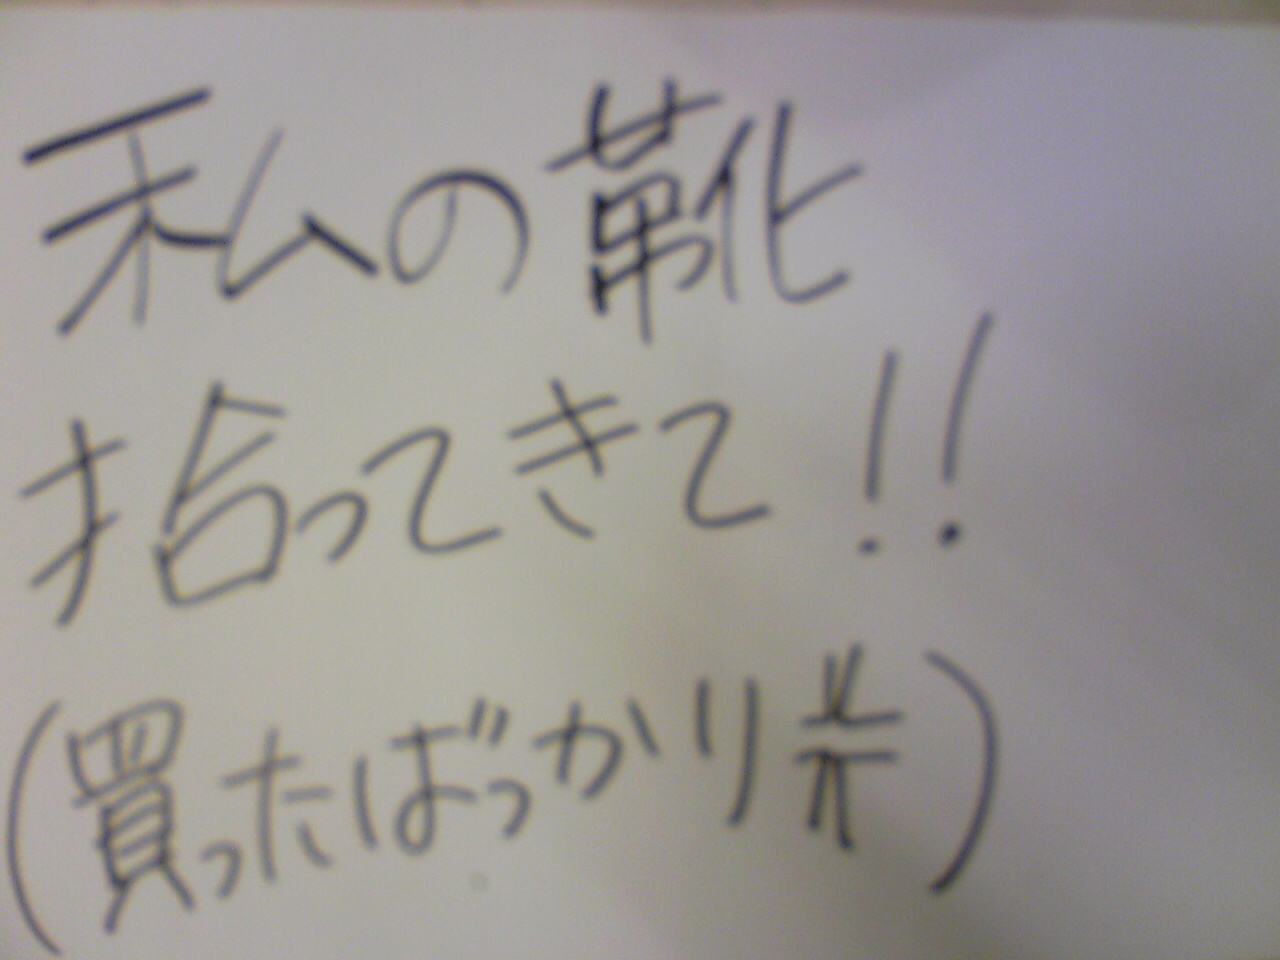 私の靴
拾ってきて!!
(買ったばっかり)